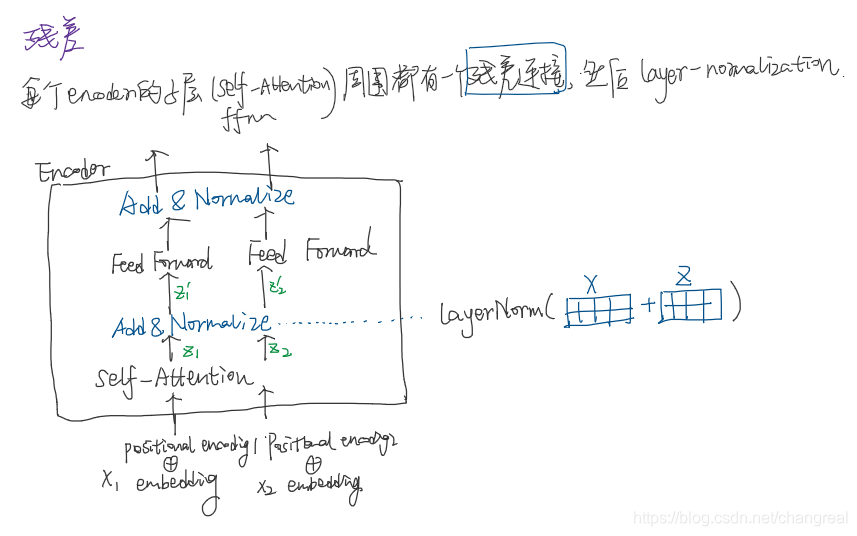 残差
每个encoder的子层(self-Attention 周围都有一个残差连接, 然后 layer-normalization.
ffnn)
Encoder
Add & Normalize
Feed Forward Feed Forward
z₁' z₂'
Add & Normalize LayerNorm( X + Z )
z₁ z₂
Self-Attention
positional encoding1 Positional encoding2
⊕ ⊕
X₁ embedding X₂ embedding
https://blog.csdn.net/changreal